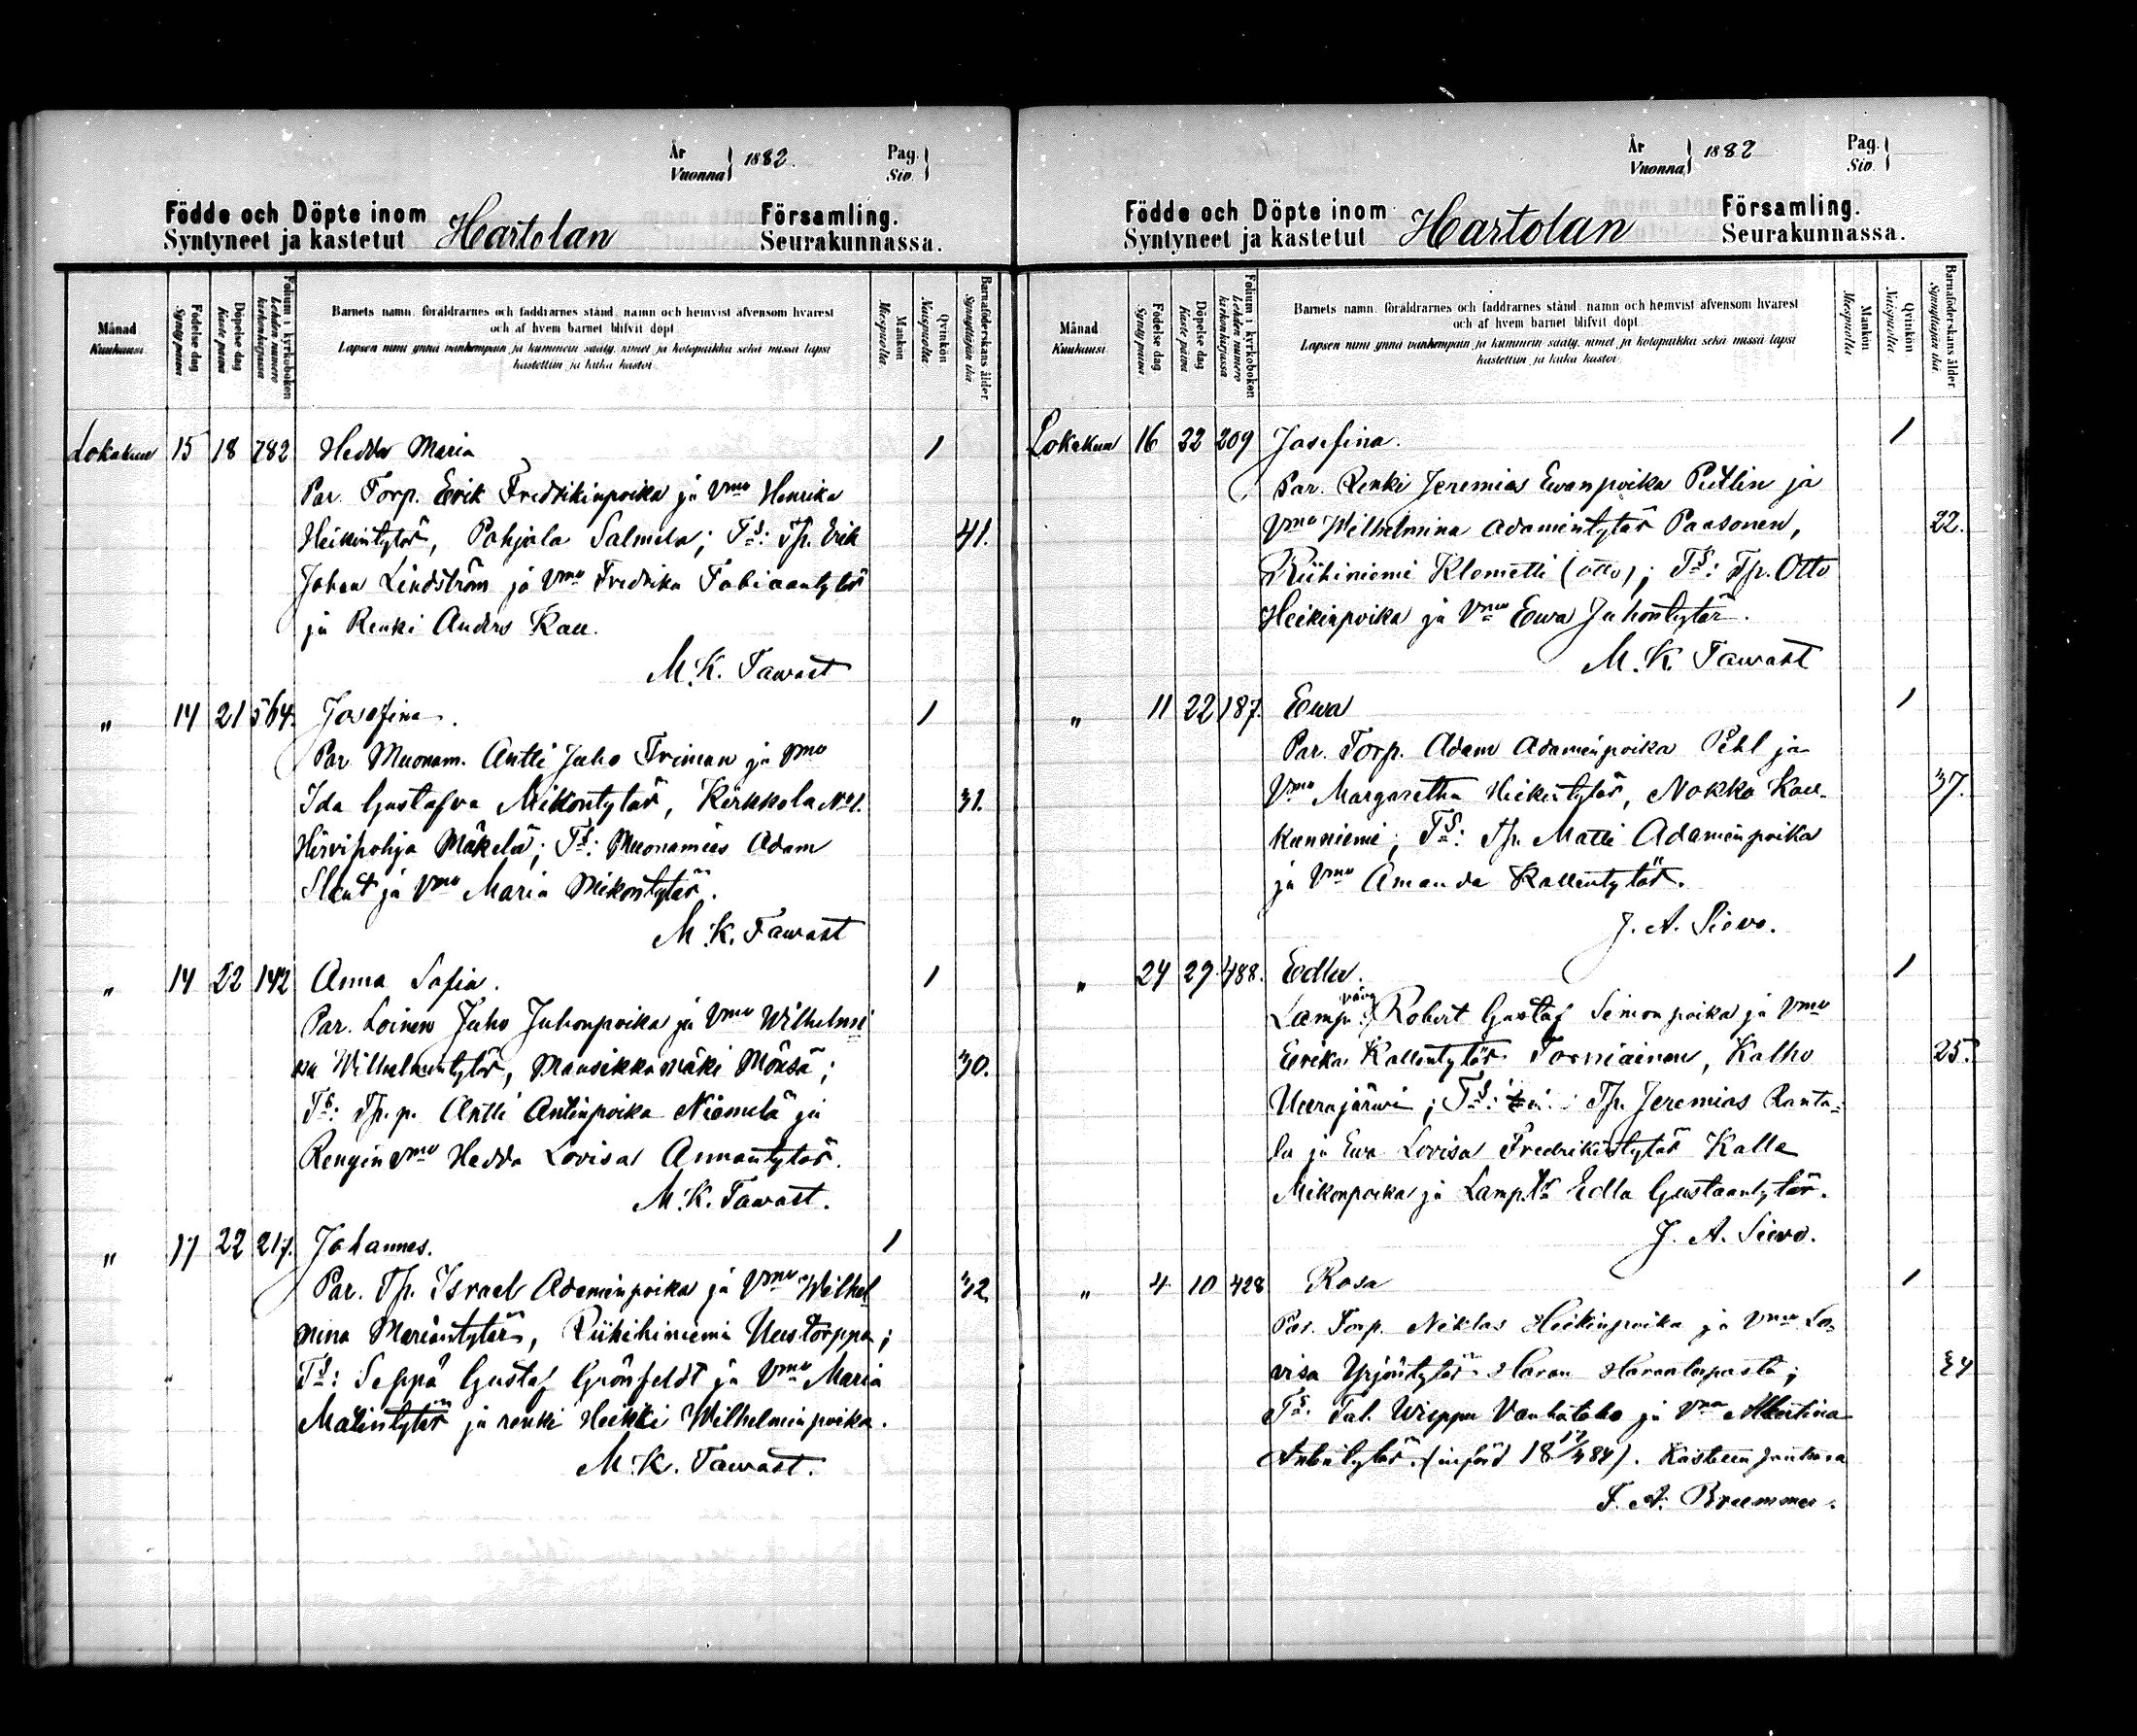 År
Vuonna 1882.
Pag.
Siv.
Födde och Döpte inom
Syntyneet ja kastetut Hartolan
Församling.
Seurakunnassa.
Månad
Kuukausi
Födelse dag
Synty päivä
Döpelse dag
Kaste päivä
Folium i kyrkoboken
Lehden numero kirkonkirjassa
Barnets namn, föräldrarnes och faddrarnes stånd, namn och hemvist äfvensom hvarest
och af hvem barnet blifvit döpt.
Lapsen nimi ynnä vanhempain ja kummein sääty, nimet ja kotopaikka sekä missä lapsi
kastettiin ja kuka kastoi.
Mankön
Miespuolta.
Qvinkön
Naispuolta.
Barnaföderskans ålder
Synnyttäjän ikä
Lokakuu 15 18 782 Hedda Maria 1
Par. Torp. Erik Fredrikinpoika ja Vmo Henrika
Heikintytär, Pohjola Salmela; Ts: Tp. Erik 41.
Johan Lindström ja Vmo Fredrika Fabiaantytär
ja Renki Anders Kau.
M. K. Tawast
" 14 21 564. Josefina. 1
Par Muonam. Antti Juho Friman ja Vmo
Ida Gustafva Mikontytär, Kirkkola No 1. 31.
Hirvipohja Mäkelä; Ts: Muonamies Adam
Slant ja Vmo Maria Mikontytär.
M. K. Tawast
" 14 22 142 Anna Sofia. 1
Par. Loinen Juho Juhonpoika ja Vmo Wilhelmi
na Wilhelmintytär, Mansikkamäki Mönsä; 30.
Ts: Tp. p. Antti Antinpoika Niemelä ja
Rengin vmo Hedda Lovisa Annantytär.
M. K. Tawast.
" 17 22 217. Johannes. 1
Par. Tp. Israel Adaminpoika ja Vmo Wilhel 32
mina Mariantytär, Riihiniemi Uustorppa;
Ts: Seppä Gustaf Grönfeldt ja Vmo Maria
Matintytär ja renki Heikki Wilhelminpoika.
M. K. Tawast.
År
Vuonna 1882
Pag.
Siv.
Födde och Döpte inom
Syntyneet ja kastetut Hartolan
Församling.
Seurakunnassa.
Månad
Kuukausi
Födelse dag
Synty päivä
Döpelse dag
Kaste päivä
Folium i kyrkoboken
Lehden numero kirkonkirjassa
Barnets namn, föräldrarnes och faddrarnes stånd, namn och hemvist äfvensom hvarest
och af hvem barnet blifvit döpt.
Lapsen nimi ynnä vanhempain ja kummein sääty, nimet ja kotopaikka sekä missä lapsi
kastettiin ja kuka kastoi.
Mankön
Miespuolta
Qvinkön
Naispuolta
Barnaföderskans ålder
Synnyttäjän ikä
Lokakuu 16 22 209 Josefina. 1
Par. Renki Jeremias Ewanpoika Putlin ja
Vmo Wilhelmina Adamintytär Paasonen, 22.
Riihiniemi Klometti (Otto); Ts: Tp. Otto
Heikinpoika ja Vmo Ewa Juhontytär.
M. K. Tawast
" 11 22 187. Ewa 1
Par. Torp. Adam Adaminpoika Pehl ja
Vmo Margaretha Heikintytär, Nokka Kau- 37.
kunniemi; Ts: Tp. Matti Adaminpoika
ja Vmo Amanda Kallentytär.
J. A. Siewo.
" 24 29. 488. Edla. 1
Lamp. Robert Gustaf Simonpoika ja Vmo
Eerika Kallentytär Torniainen, Kalho 25.
Uurajärwi; Ts: Tp. Jeremias Ranta-
la ja Ewa Lovisa Fredrikintytär Kalle
Mikonpoika ja Lamp. Edla Gustaantytär.
J. A. Siewo.
" 4 10 428 Rosa 1
Par. Torp. Niklas Heikinpoika ja Vmo Lo-
visa Yrjöntytär Hara 24
Ts. Tal. Wieppu Vanhatalo ja Vmo Albertina
Antintytär. (införd 18 17/4 84). Kasteen
F. A. Bruummer.